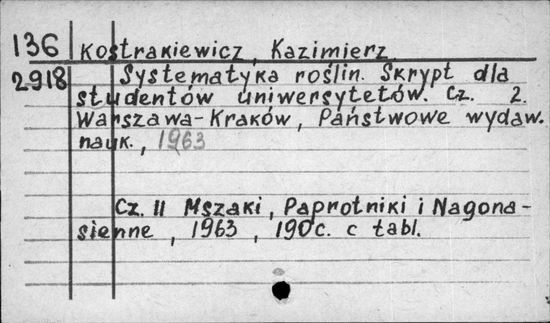 136 Kostrakiewicz, Kazimierz
2918 Systematyka roślin. Skrypt dla
studentów uniwersytetów. Cz. 2.
Warszawa-Kraków, Państwowe wydaw.
nauk., 1963
Cz. II Mszaki, Paprotniki i Nagona-
sienne, 1963, 190c. c tabl.